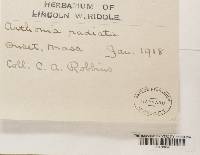 HERBARIUM OF
LINCOLN W. RIDDLE
Arthonia radiata
Onset, Mass Jan. 1918
Coll. C. A. Robbins